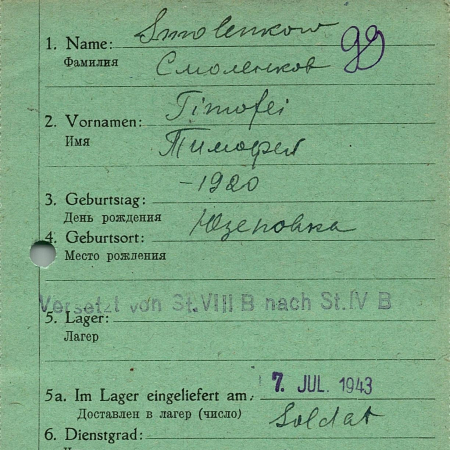 Smolenkow
1. Name:
Фамилия Смоленков 99
Timofei
2. Vornamen:
Имя Тимофей
-1920
3. Geburtstag:
День рождения
4. Geburtsort: Юзеповка
Место рождения
Versetzt von St. VIII B nach St. IV B
5. Lager:
Лагер
5a. Im Lager eingeliefert am: 7. JUL. 1943
Доставлен в лагер (число) Soldat
6. Dienstgrad: